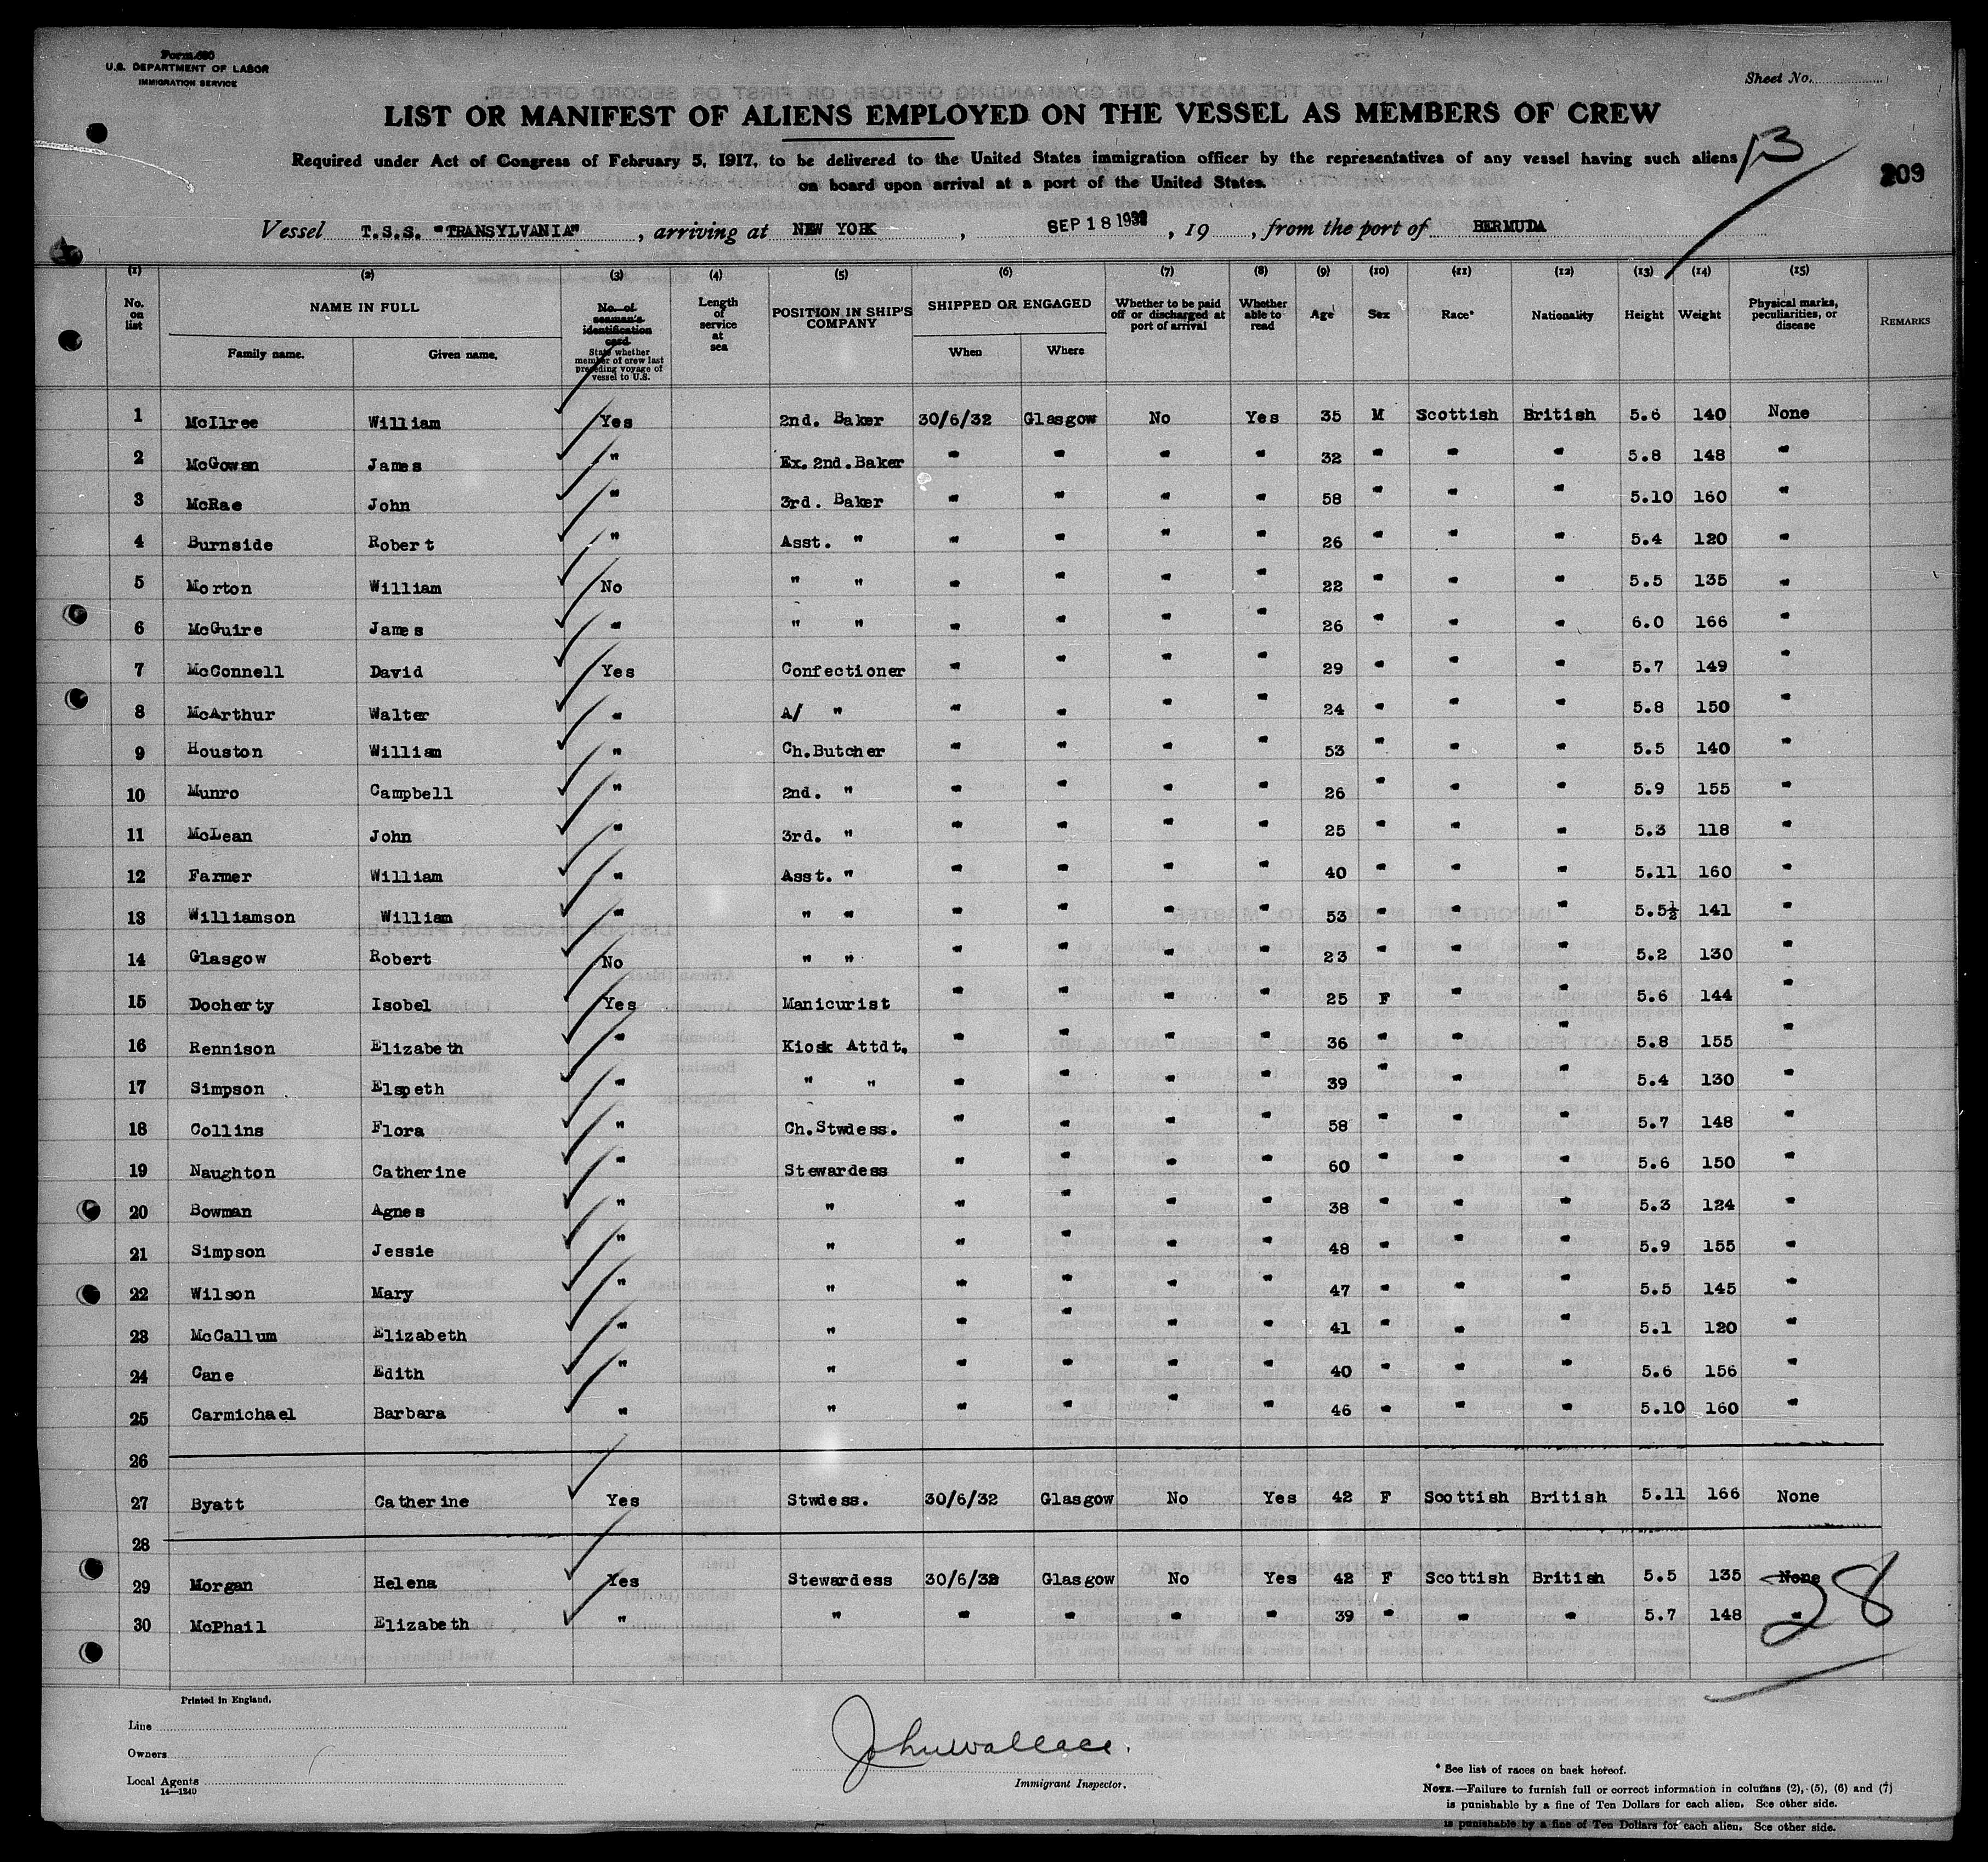 Form 680
U.S. DEPARTMENT OF LABOR
IMMIGRATION SERVICE
Sheet No.
LIST OR MANIFEST OF ALIENS EMPLOYED ON THE VESSEL AS MEMBERS OF CREW
Required under Act of Congress of February 5, 1917, to be delivered to the United States immigration officer by the representatives of any vessel having such aliens
on board upon arrival at a port of the United States.
13
209
Vessel T.S.S. "TRANSYLVANIA", arriving at NEW YORK, SEP 18 1932, 19 , from the port of BERMUDA
(1) (2) (3) (4) (5) (6) (7) (8) (9) (10) (11) (12) (13) (14) (15)
No. on list NAME IN FULL Family name. Given name. No. of seaman's identification card State whether member of crew last preceding voyage of vessel to U.S. Length of service at sea POSITION IN SHIP'S COMPANY SHIPPED OR ENGAGED When Where Whether to be paid off or discharged at port of arrival Whether able to read Age Sex Race* Nationality Height Weight Physical marks, peculiarities, or disease REMARKS
1 McIlree William Yes 2nd. Baker 30/6/32 Glasgow No Yes 35 M Scottish British 5.6 140 None
2 McGowan James " Ex. 2nd. Baker " " " " 32 " " " 5.8 148 "
3 McRae John " 3rd. Baker " " " " 58 " " " 5.10 160 "
4 Burnside Robert " Asst. " " " " " 26 " " " 5.4 120 "
5 Morton William No " " " " " " 22 " " " 5.5 135 "
6 McGuire James " " " " " " " 26 " " " 6.0 166 "
7 McConnell David Yes Confectioner " " " " 29 " " " 5.7 149 "
8 McArthur Walter " A/ " " " " " 24 " " " 5.8 150 "
9 Houston William " Ch.Butcher " " " " 53 " " " 5.5 140 "
10 Munro Campbell " 2nd. " " " " " 26 " " " 5.9 155 "
11 McLean John " 3rd. " " " " " 25 " " " 5.3 118 "
12 Farmer William " Asst. " " " " " 40 " " " 5.11 160 "
13 Williamson William " " " " " " " 53 " " " 5.5½ 141 "
14 Glasgow Robert No " " " " " " 23 " " " 5.2 130 "
15 Docherty Isobel Yes Manicurist " " " " 25 F " " 5.6 144 "
16 Rennison Elizabeth " Kiosk Attdt. " " " " 36 " " " 5.8 155 "
17 Simpson Elspeth " " " " " " " 39 " " " 5.4 130 "
18 Collins Flora " Ch.Stwdess. " " " " 58 " " " 5.7 148 "
19 Naughton Catherine " Stewardess " " " " 60 " " " 5.6 150 "
20 Bowman Agnes " " " " " " 38 " " " 5.3 124 "
21 Simpson Jessie " " " " " " 48 " " " 5.9 155 "
22 Wilson Mary " " " " " " 47 " " " 5.5 145 "
23 McCallum Elizabeth " " " " " " 41 " " " 5.1 120 "
24 Cane Edith " " " " " " 40 " " " 5.6 156 "
25 Carmichael Barbara " " " " " " 46 " " " 5.10 160 "
26
27 Byatt Catherine Yes Stwdess. 30/6/32 Glasgow No Yes 42 F Scottish British 5.11 166 None
28
29 Morgan Helena Yes Stewardess 30/6/32 Glasgow No Yes 42 F Scottish British 5.5 135 None
30 McPhail Elizabeth " " " " " " 39 " " " 5.7 148 "
28
Printed in England.
Line
Owners
Local Agents
14—1240
John Wallace.
Immigrant Inspector.
* See list of races on back hereof.
NOTE.—Failure to furnish full or correct information in columns (2), (5), (6) and (7)
is punishable by a fine of Ten Dollars for each alien. See other side.
is punishable by a fine of Ten Dollars for each alien. See other side.